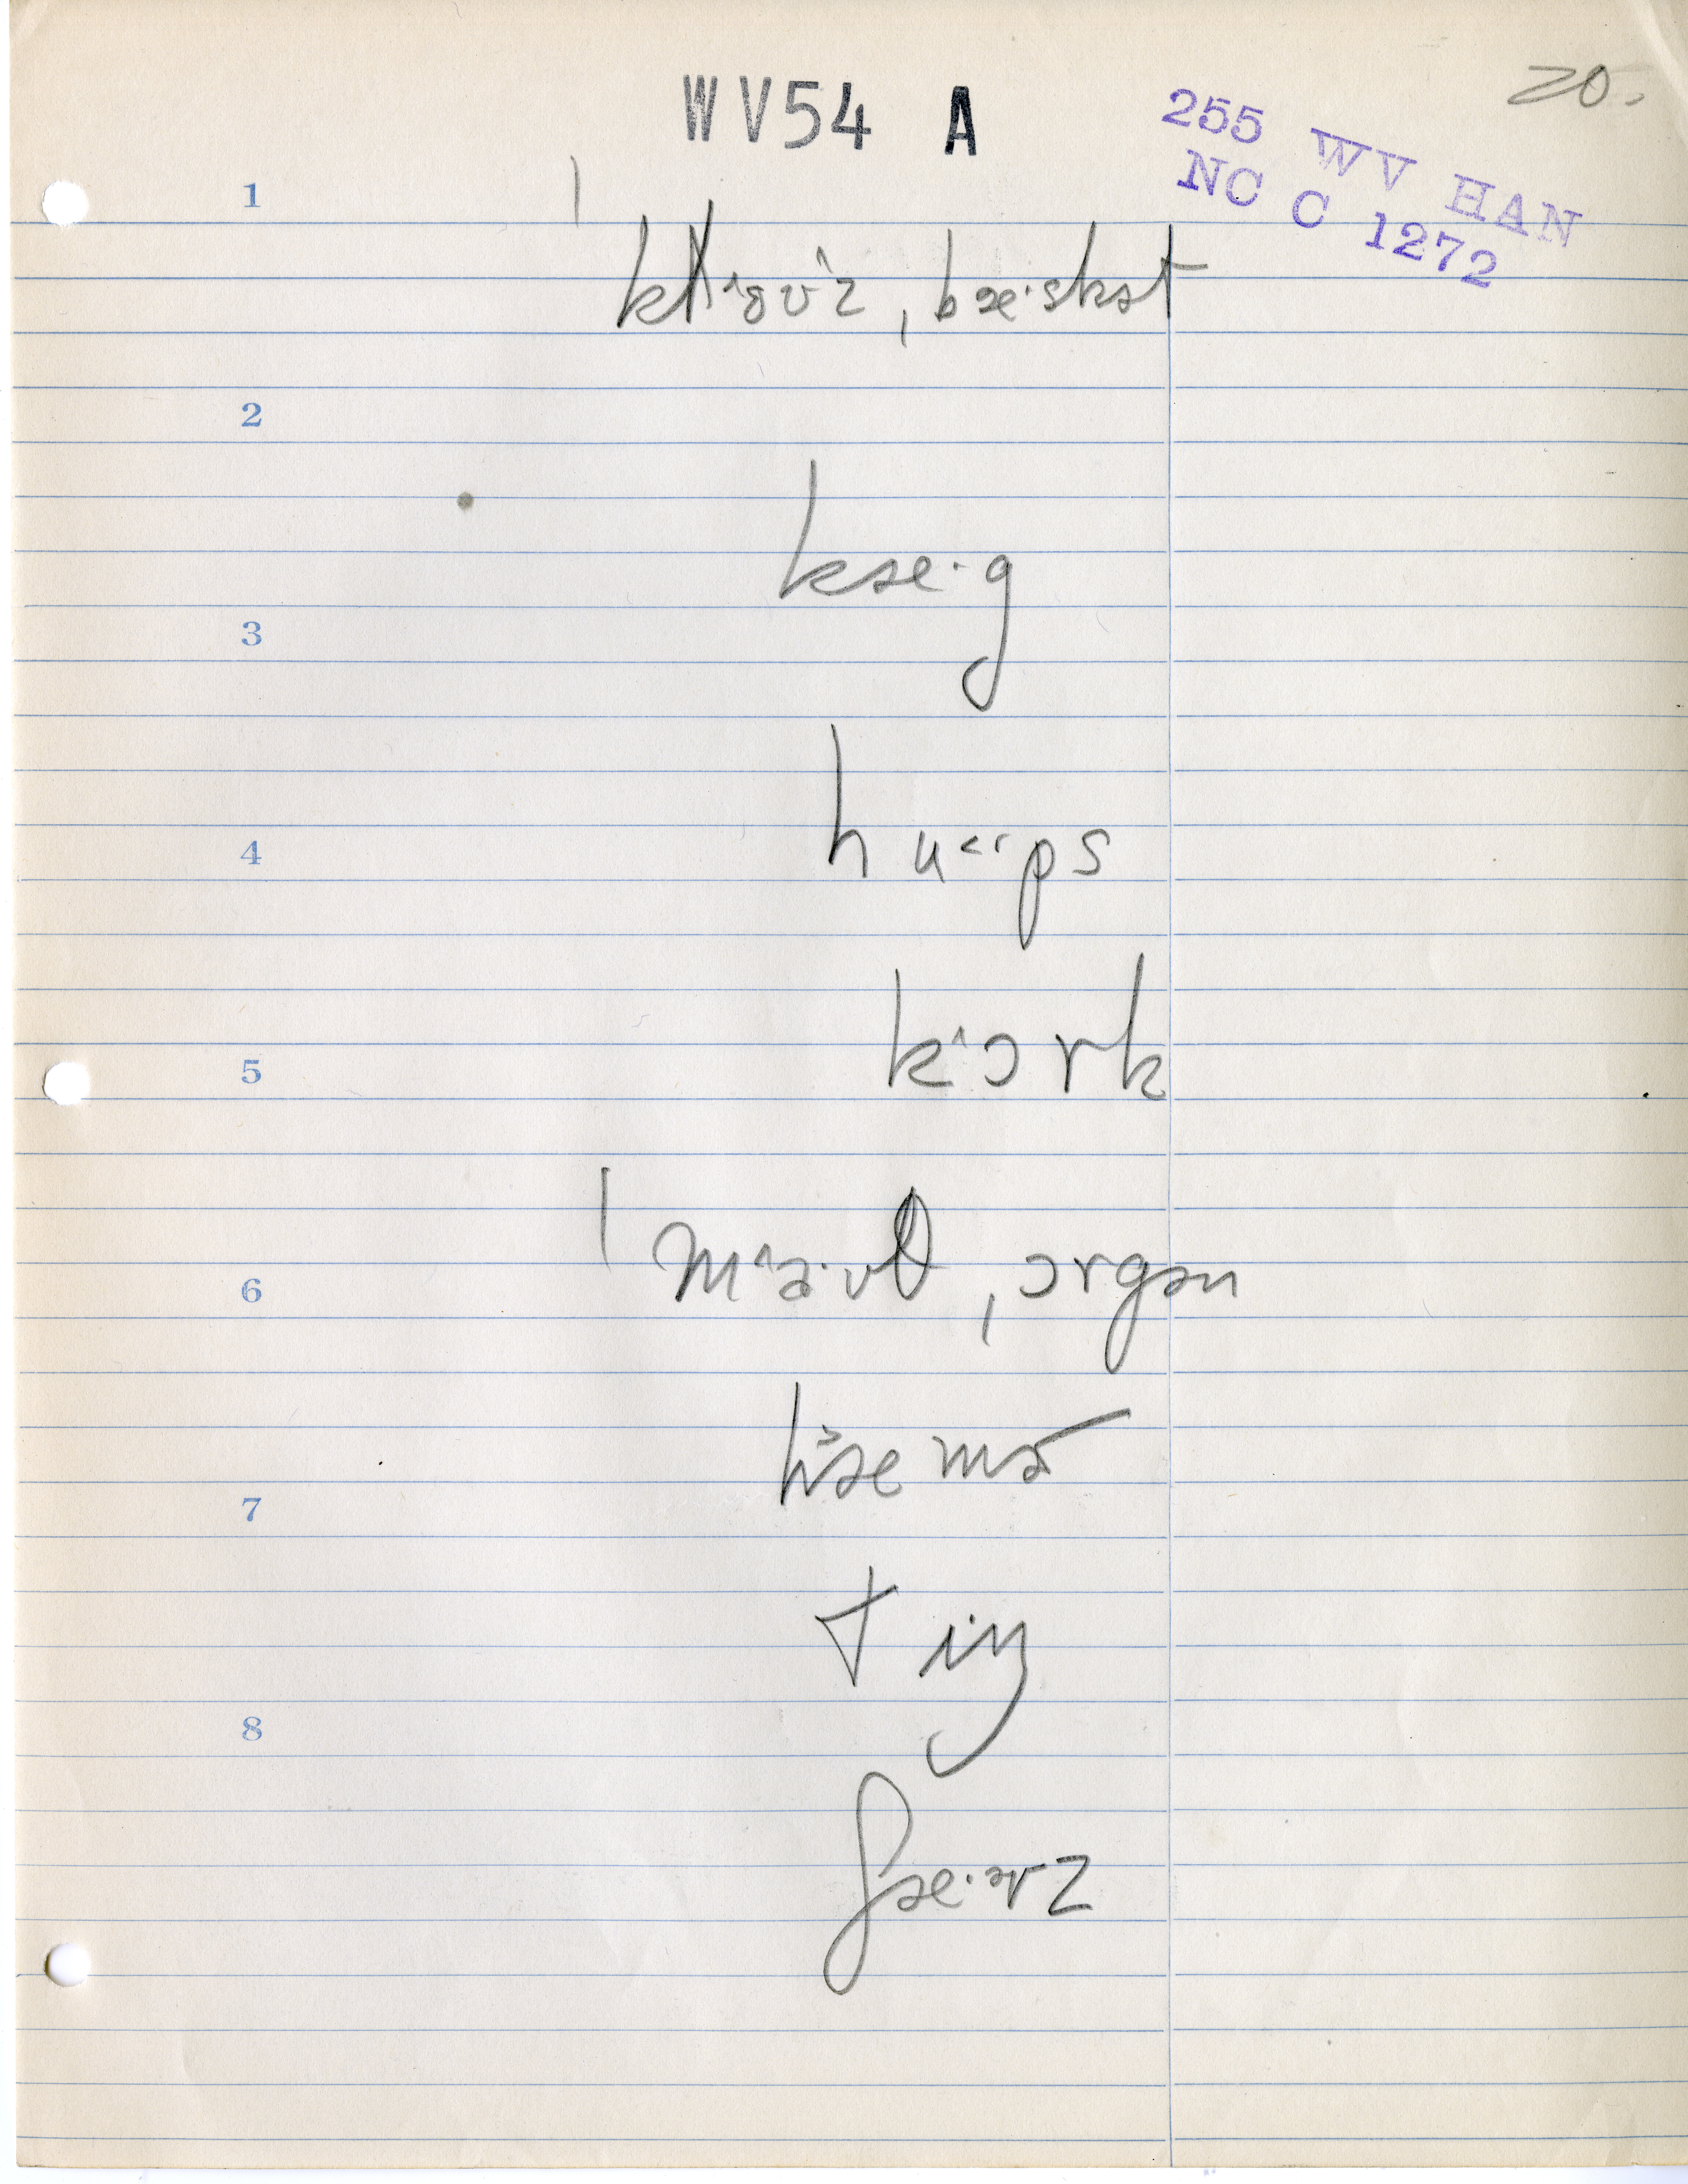 20.
WV54 A
255 WV HAN
NC C 1272
1
kl˄ˑɵʊ^z, bæˑskət
2
kæˑg
3
hu<ˑps
4
k^ɔrk
5
m^aˑʊθ, ɔrgən
6
hæmɚ
7
tiŋ
8
ʃæˑɚz